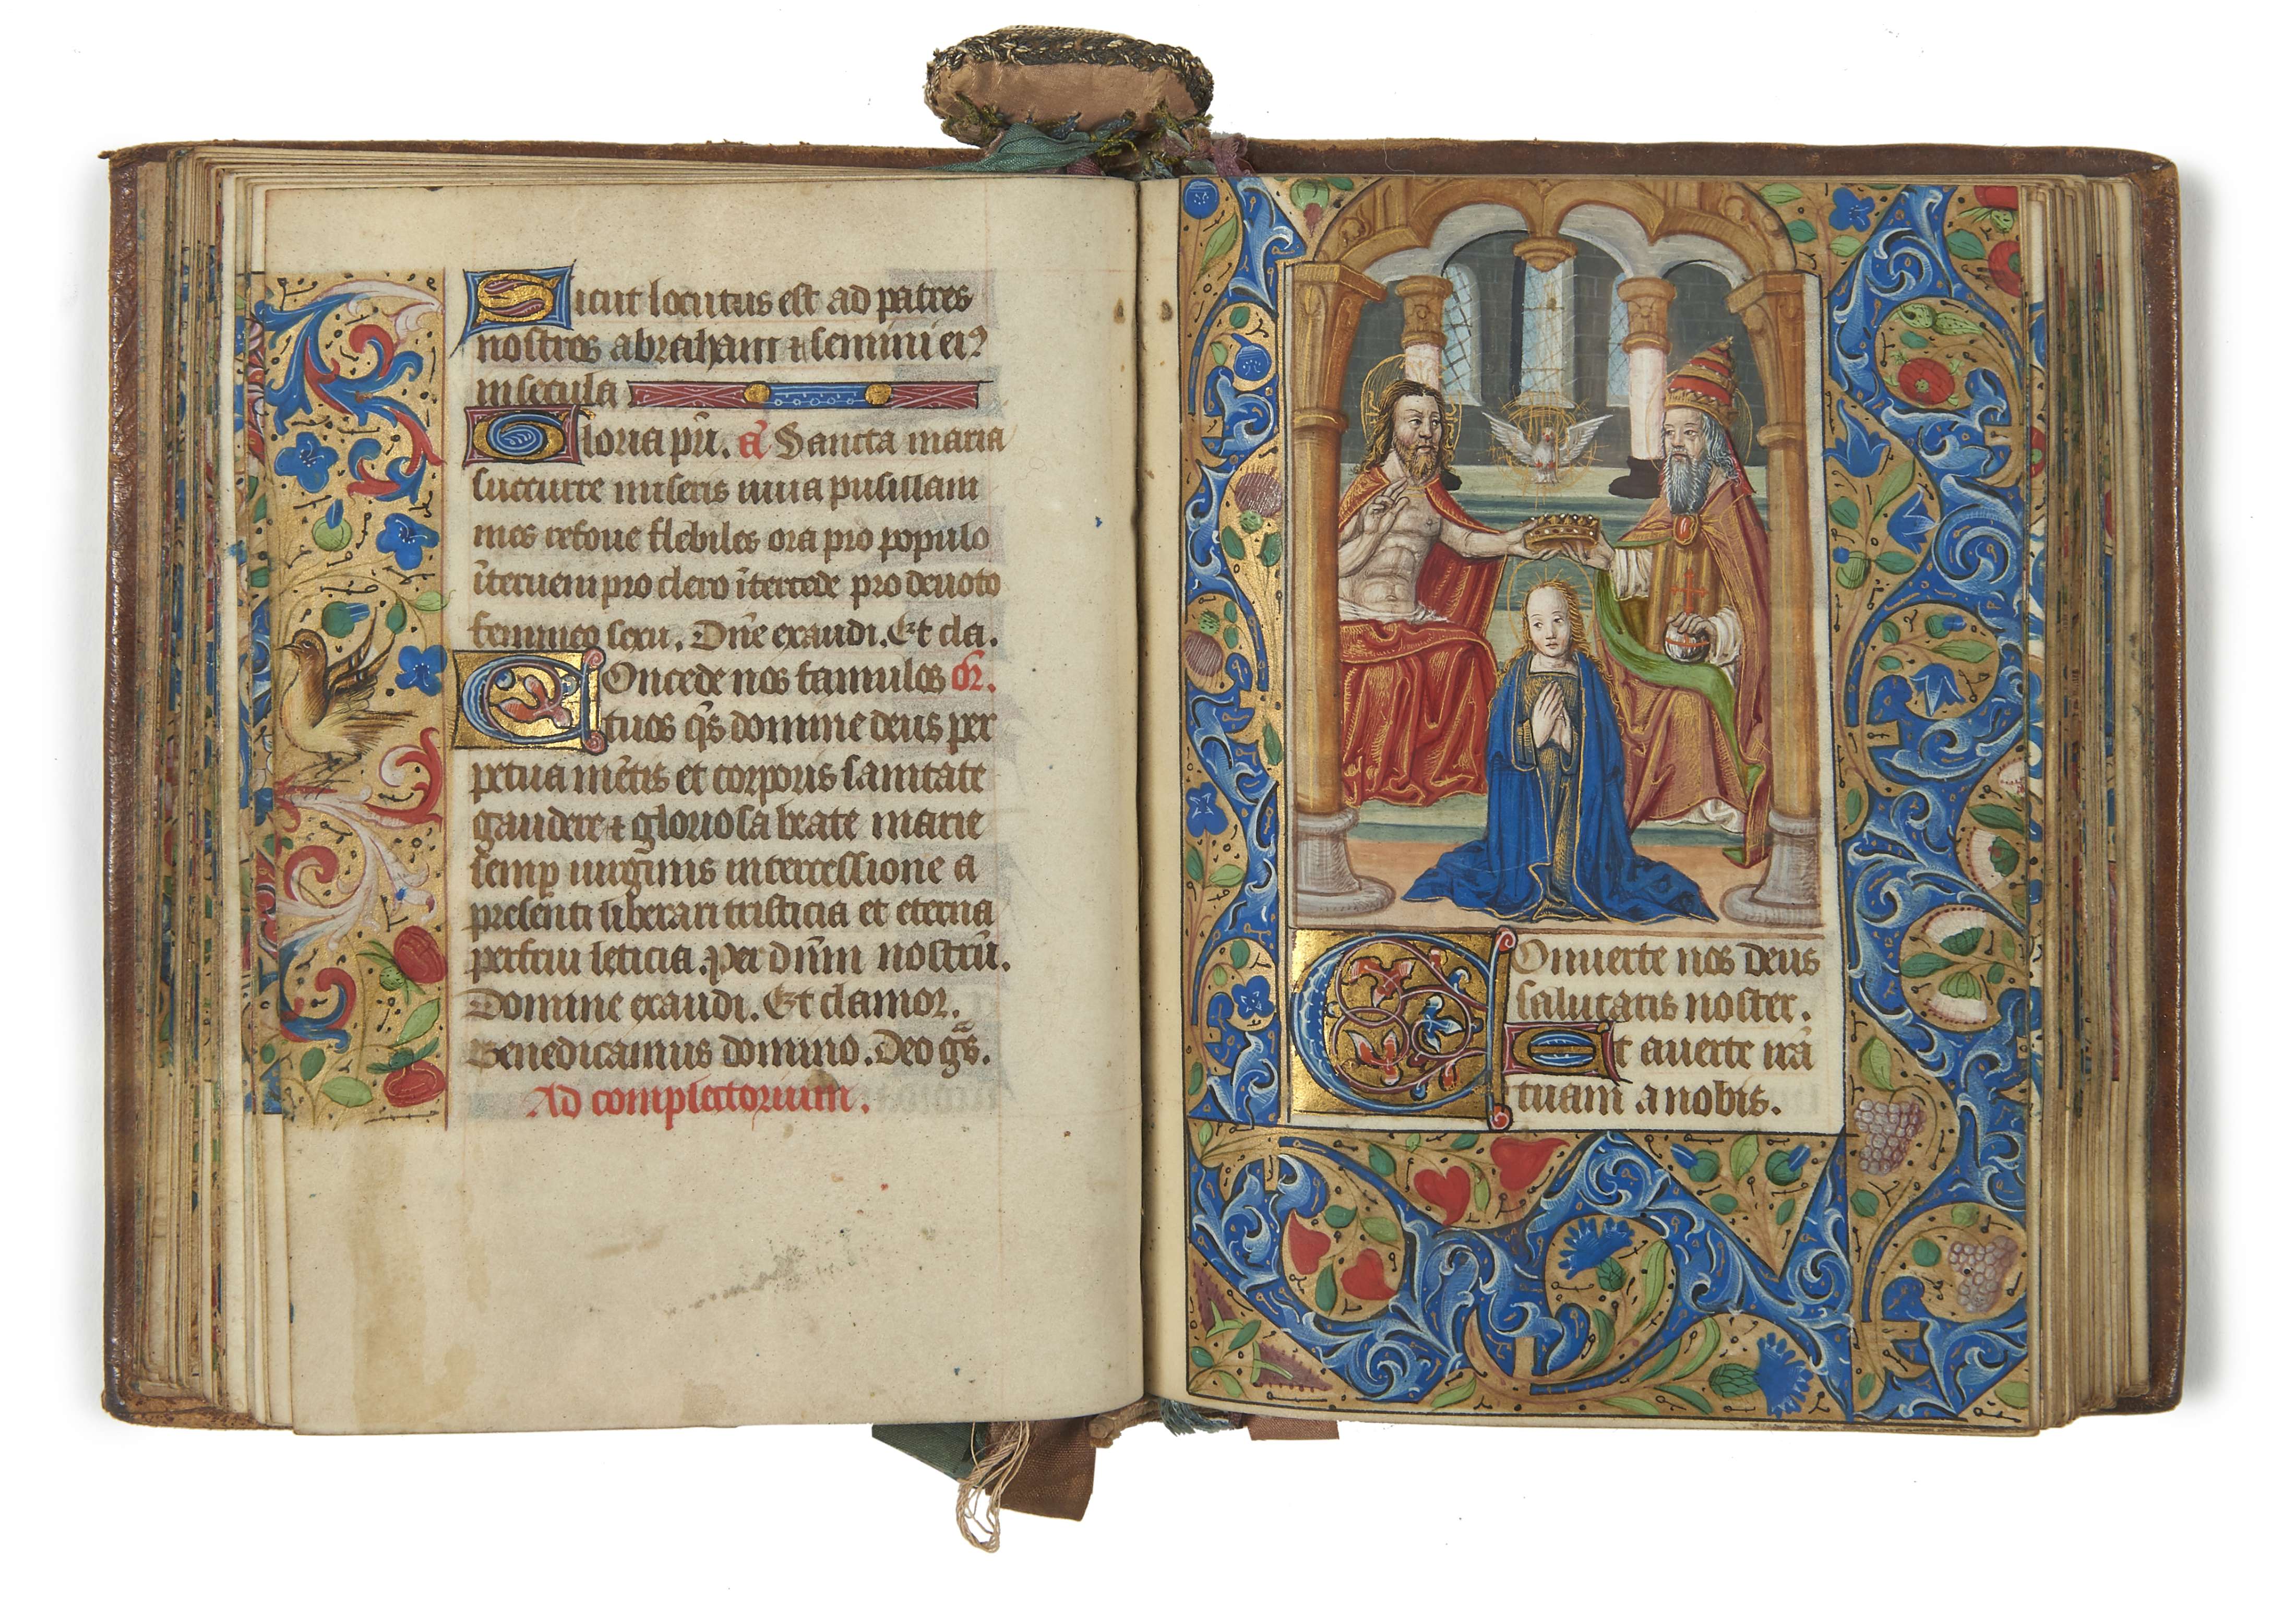 Sicut locutus est ad patres
nostros abraham ⁊ semini eiꝰ
insecula
Gloria pr̃i. a᷒ Sancta maria
succurre miseris iuua pusillani
mes refoue flebiles ora pro populo
ĩterueni pro clero ĩtercede pro deuoto
femineo sexu. Dñe exaudi. Et cla.
Concede nos famulos or̃.
tuos q̃s domine deus per
petua mẽtis et corporis sanitate
gaudere ⁊ gloriosa beate marie
semꝑ uirginis intercessione a
presenti liberari tristicia et eterna
perfrui leticia. Per dñm nostrũ.
Domine exaudi. Et clamor.
Benedicamus domino. Deo gr̃as.
Ad completorium.
Conuerte nos deus
salutaris noster.
Et auerte irã
tuam a nobis.